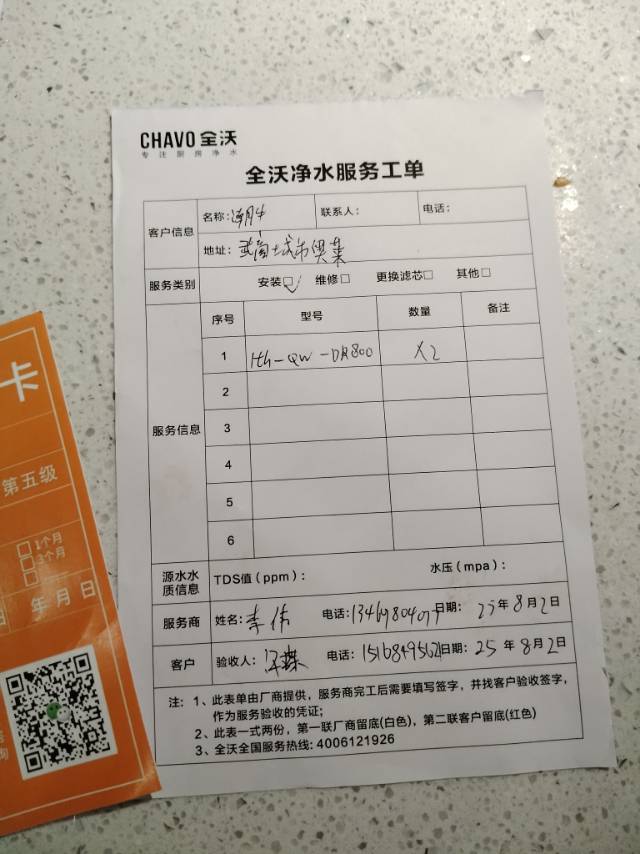 CHAVO 全沃
专注厨房净水
全沃净水服务工单
客户信息
名称: 联系人: 电话:
地址: 城市
服务类别 安装□ ✓ 维修□ 更换滤芯□ 其他□
服务信息
序号 型号 数量 备注
1 Hh-QW-DR800 X2
2
3
4
5
6
源水水质信息 TDS值(ppm): 水压(mpa):
服务商 姓名:李伟 电话: 日期: 25年8月2日
客户 验收人: 电话: 日期: 25年8月2日
注: 1、此表单由厂商提供,服务商完工后需要填写签字,并找客户验收签字,
作为服务验收的凭证;
2、此表一式两份,第一联厂商留底(白色),第二联客户留底(红色)
3、全沃全国服务热线: 4006121926
卡
第五级
□1个月
□3个月
□
日 年月日
询